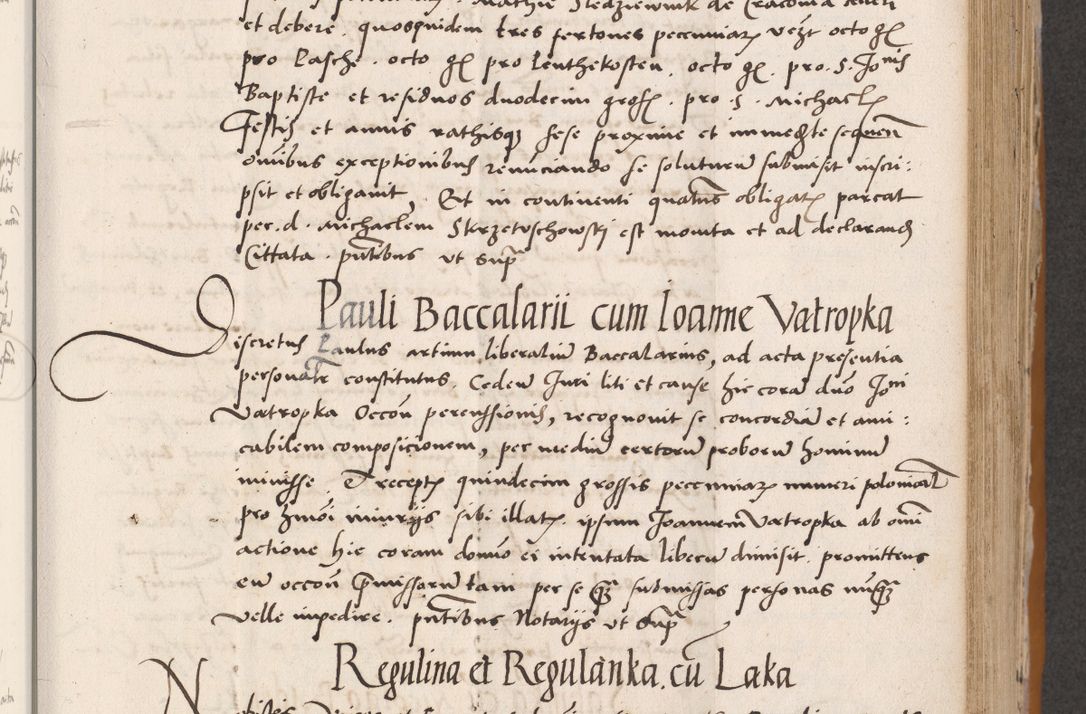 et debere, quosquidem tres fertones pecuniarz vezt octo gſ
pro Pasche, octo gſ pro Penthekosten, octo gſ. pro. S. Jonis
Baptiste et residuos duodecim groſſ. pro S. Michaeliſ
Festis et annis rathisqz sese proxime et immedte sequen
omibus exceptionibus renunciando se soluturu submisit inscri:
psit et obligavit. Et in continenti quatus obligatz pareat
per. d. Michaelem Skrzetvschowskj est monita et ad declarand
Cittata. pntibus vt supra
Pauli Baccalarii cum Ioanne Vatropka
Discretus Paulus artium liberaliu Baccalarius, ad acta presentia
personatr constitutus. Cedendo Juri liti et cause hic cora duo Joi
Vatropka Occon percussionis, recognovit se concordia et ami:
cabilem composicionem, per mediu certoru proboru hominum
inivisse. Et receptis quindecim grossis pecuniarz numeri polonical
pro hmoi iniurijs sibi illatz. ipsum Joannem Vatropka ab omi
actione hic coram domno ei intentata liberu dimisit. promittens
eu occon pmissorum tam per se qz submissas personas nunqz
velle impedire. pntibus Notarijs vt supra
Regulina et Regulanka. cu Laka